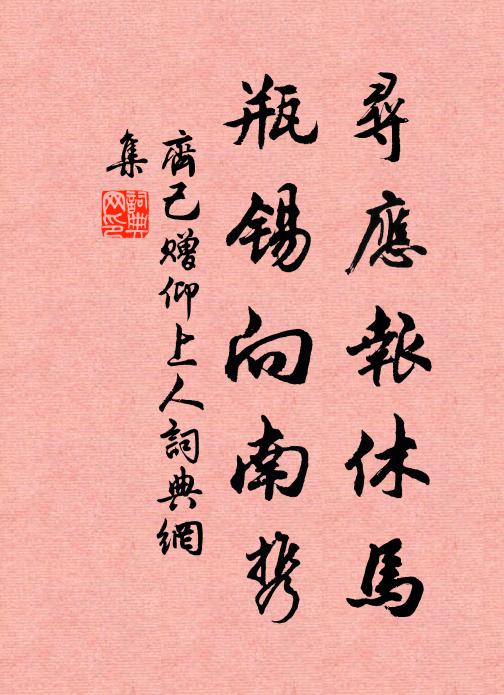 尋應報休馬
瓶錫向南携
齊己贈仰上人詞典網
集
詞典
网印